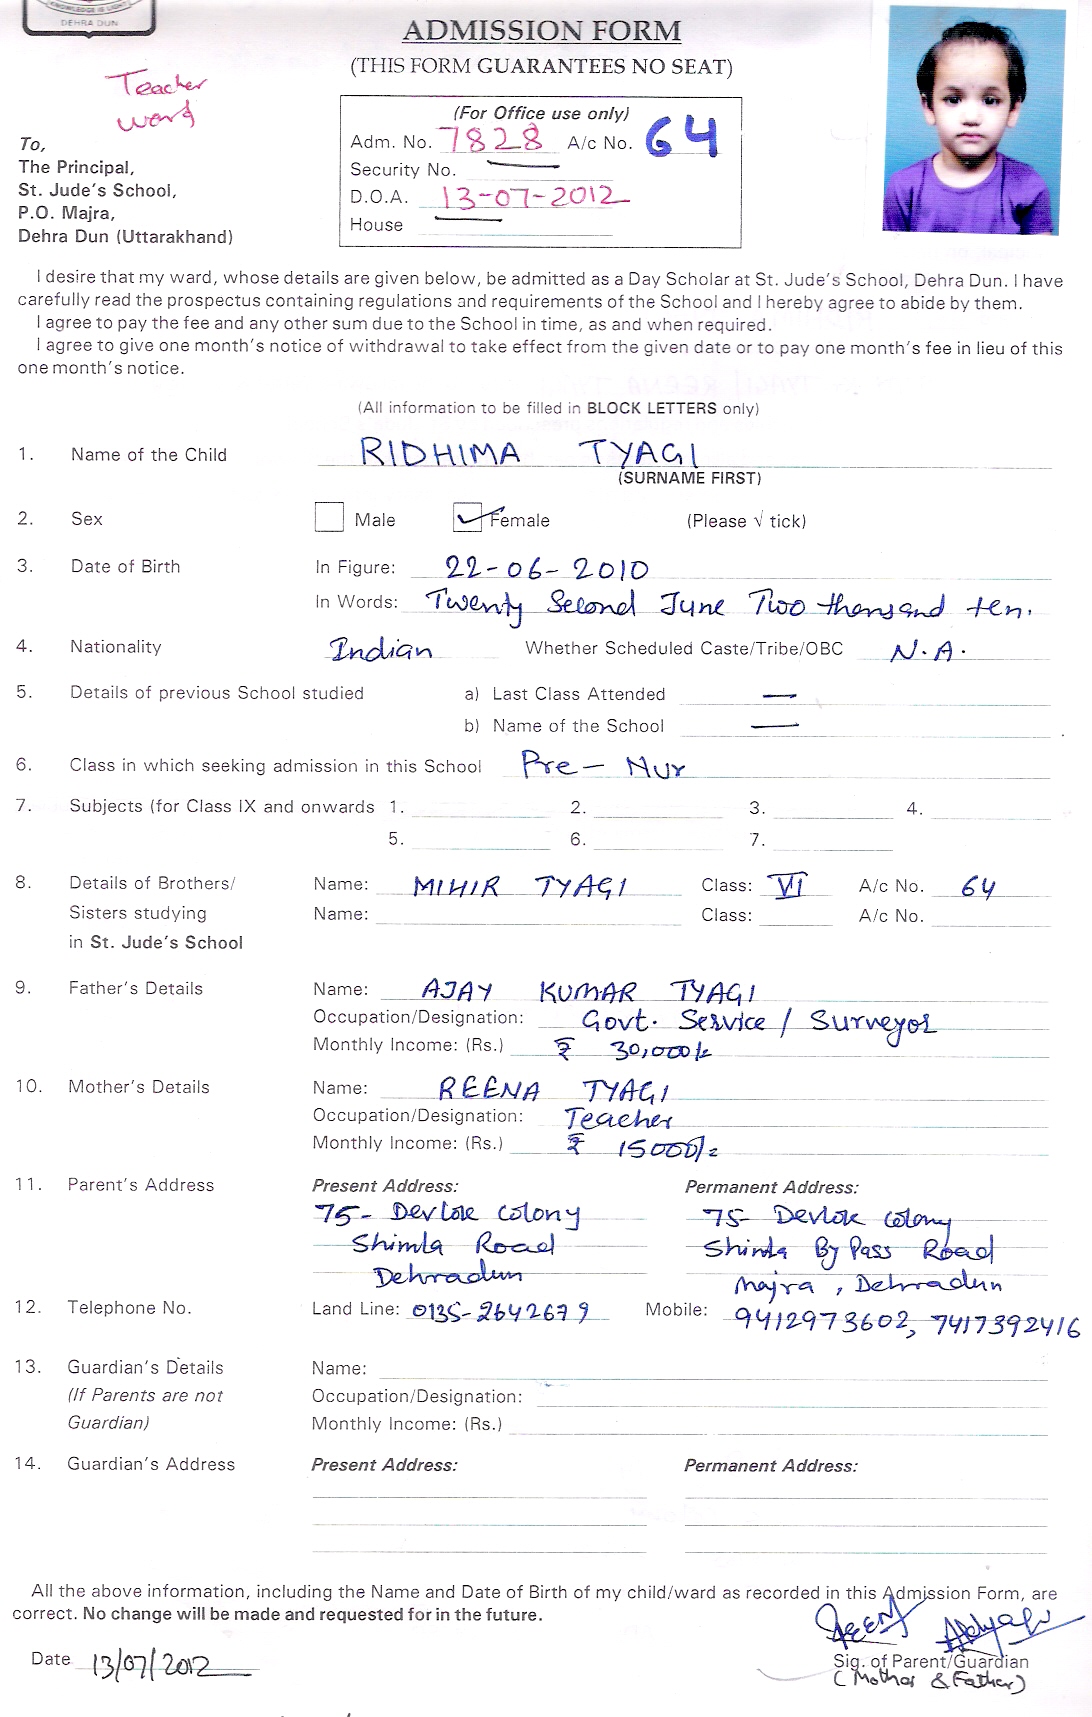 KNOWLEDGE IS LIGHT
DEHRA DUN
ADMISSION FORM
(THIS FORM GUARANTEES NO SEAT)
Teacher
ward
(For Office use only)
Adm. No. 7828 A/c No. 64
Security No. —
D.O.A. 13-07-2012
House —
To,
The Principal,
St. Jude's School,
P.O. Majra,
Dehra Dun (Uttarakhand)
I desire that my ward, whose details are given below, be admitted as a Day Scholar at St. Jude's School, Dehra Dun. I have
carefully read the prospectus containing regulations and requirements of the School and I hereby agree to abide by them.
I agree to pay the fee and any other sum due to the School in time, as and when required.
I agree to give one month's notice of withdrawal to take effect from the given date or to pay one month's fee in lieu of this
one month's notice.
(All information to be filled in BLOCK LETTERS only)
1. Name of the Child RIDHIMA TYAGI
(SURNAME FIRST)
2. Sex Male Female (Please √ tick)
3. Date of Birth In Figure: 22-06-2010
In Words: Twenty Second June Two thousand ten.
4. Nationality Indian Whether Scheduled Caste/Tribe/OBC N.A.
5. Details of previous School studied a) Last Class Attended —
b) Name of the School —
6. Class in which seeking admission in this School Pre – Nur
7. Subjects (for Class IX and onwards 1. 2. 3. 4.
5. 6. 7.
8. Details of Brothers/ Name: MIHIR TYAGI Class: VI A/c No. 64
Sisters studying Name: Class: A/c No.
in St. Jude's School
9. Father's Details Name: AJAY KUMAR TYAGI
Occupation/Designation: Govt. Service / Surveyor
Monthly Income: (Rs.) ₹ 30,000/-
10. Mother's Details Name: REENA TYAGI
Occupation/Designation: Teacher
Monthly Income: (Rs.) ₹ 15000/-
11. Parent's Address Present Address: Permanent Address:
75- Devlok Colony 75- Devlok Colony
Shimla Road Shimla By Pass Road
Dehradun Majra, Dehradun
12. Telephone No. Land Line: 0135-2642679 Mobile: 9412973602, 7417392416
13. Guardian's Details Name:
(If Parents are not Occupation/Designation:
Guardian) Monthly Income: (Rs.)
14. Guardian's Address Present Address: Permanent Address:
All the above information, including the Name and Date of Birth of my child/ward as recorded in this Admission Form, are
correct. No change will be made and requested for in the future.
Date 13/07/2012
Sig. of Parent/Guardian
(Mother & Father)